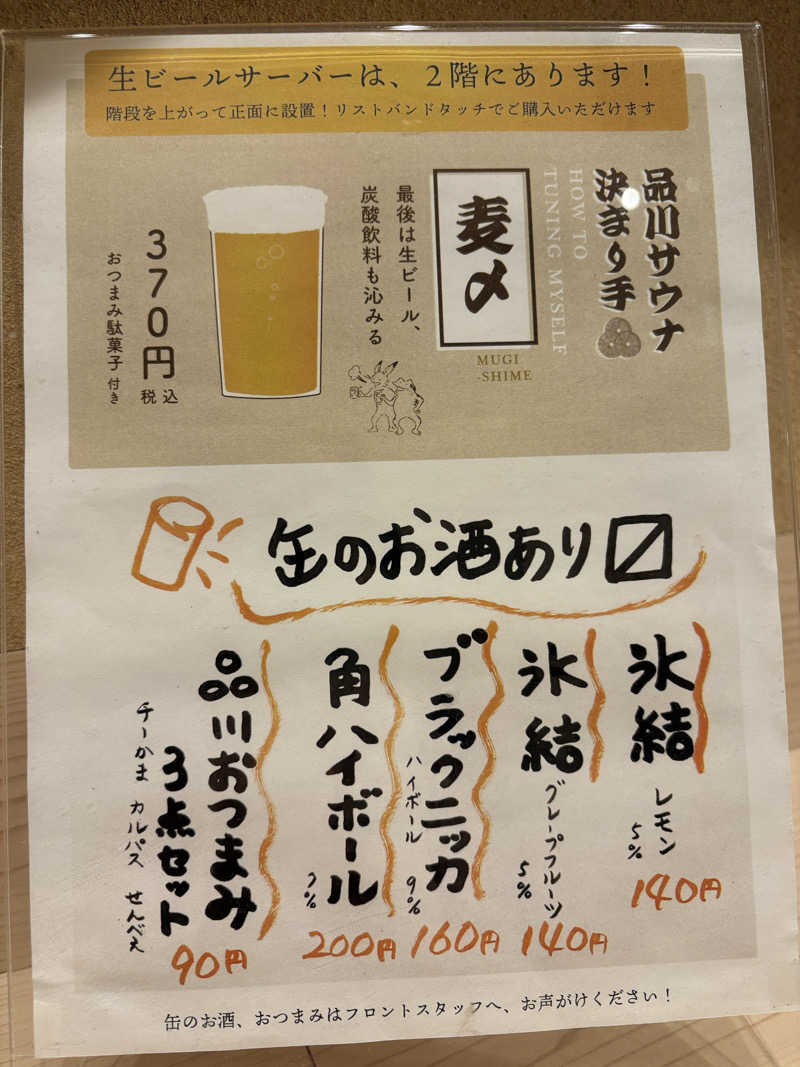 生ビールサーバーは、２階にあります！
階段を上がって正面に設置！リストバンドタッチでご購入いただけます
品川サウナ
決まり手
HOW TO
TUNING MYSELF
麦〆
MUGI
-SHIME
最後は生ビール、
炭酸飲料も沁みる
370円
税込
おつまみ駄菓子 付き
缶のお酒あり〼
氷結
レモン
5%
140円
氷結
グレープフルーツ
5%
140円
ブラックニッカ
ハイボール 9%
160円
角ハイボール
7%
200円
品川おつまみ
3点セット
チーかま カルパス せんべえ
90円
缶のお酒、おつまみはフロントスタッフへ、お声がけください！